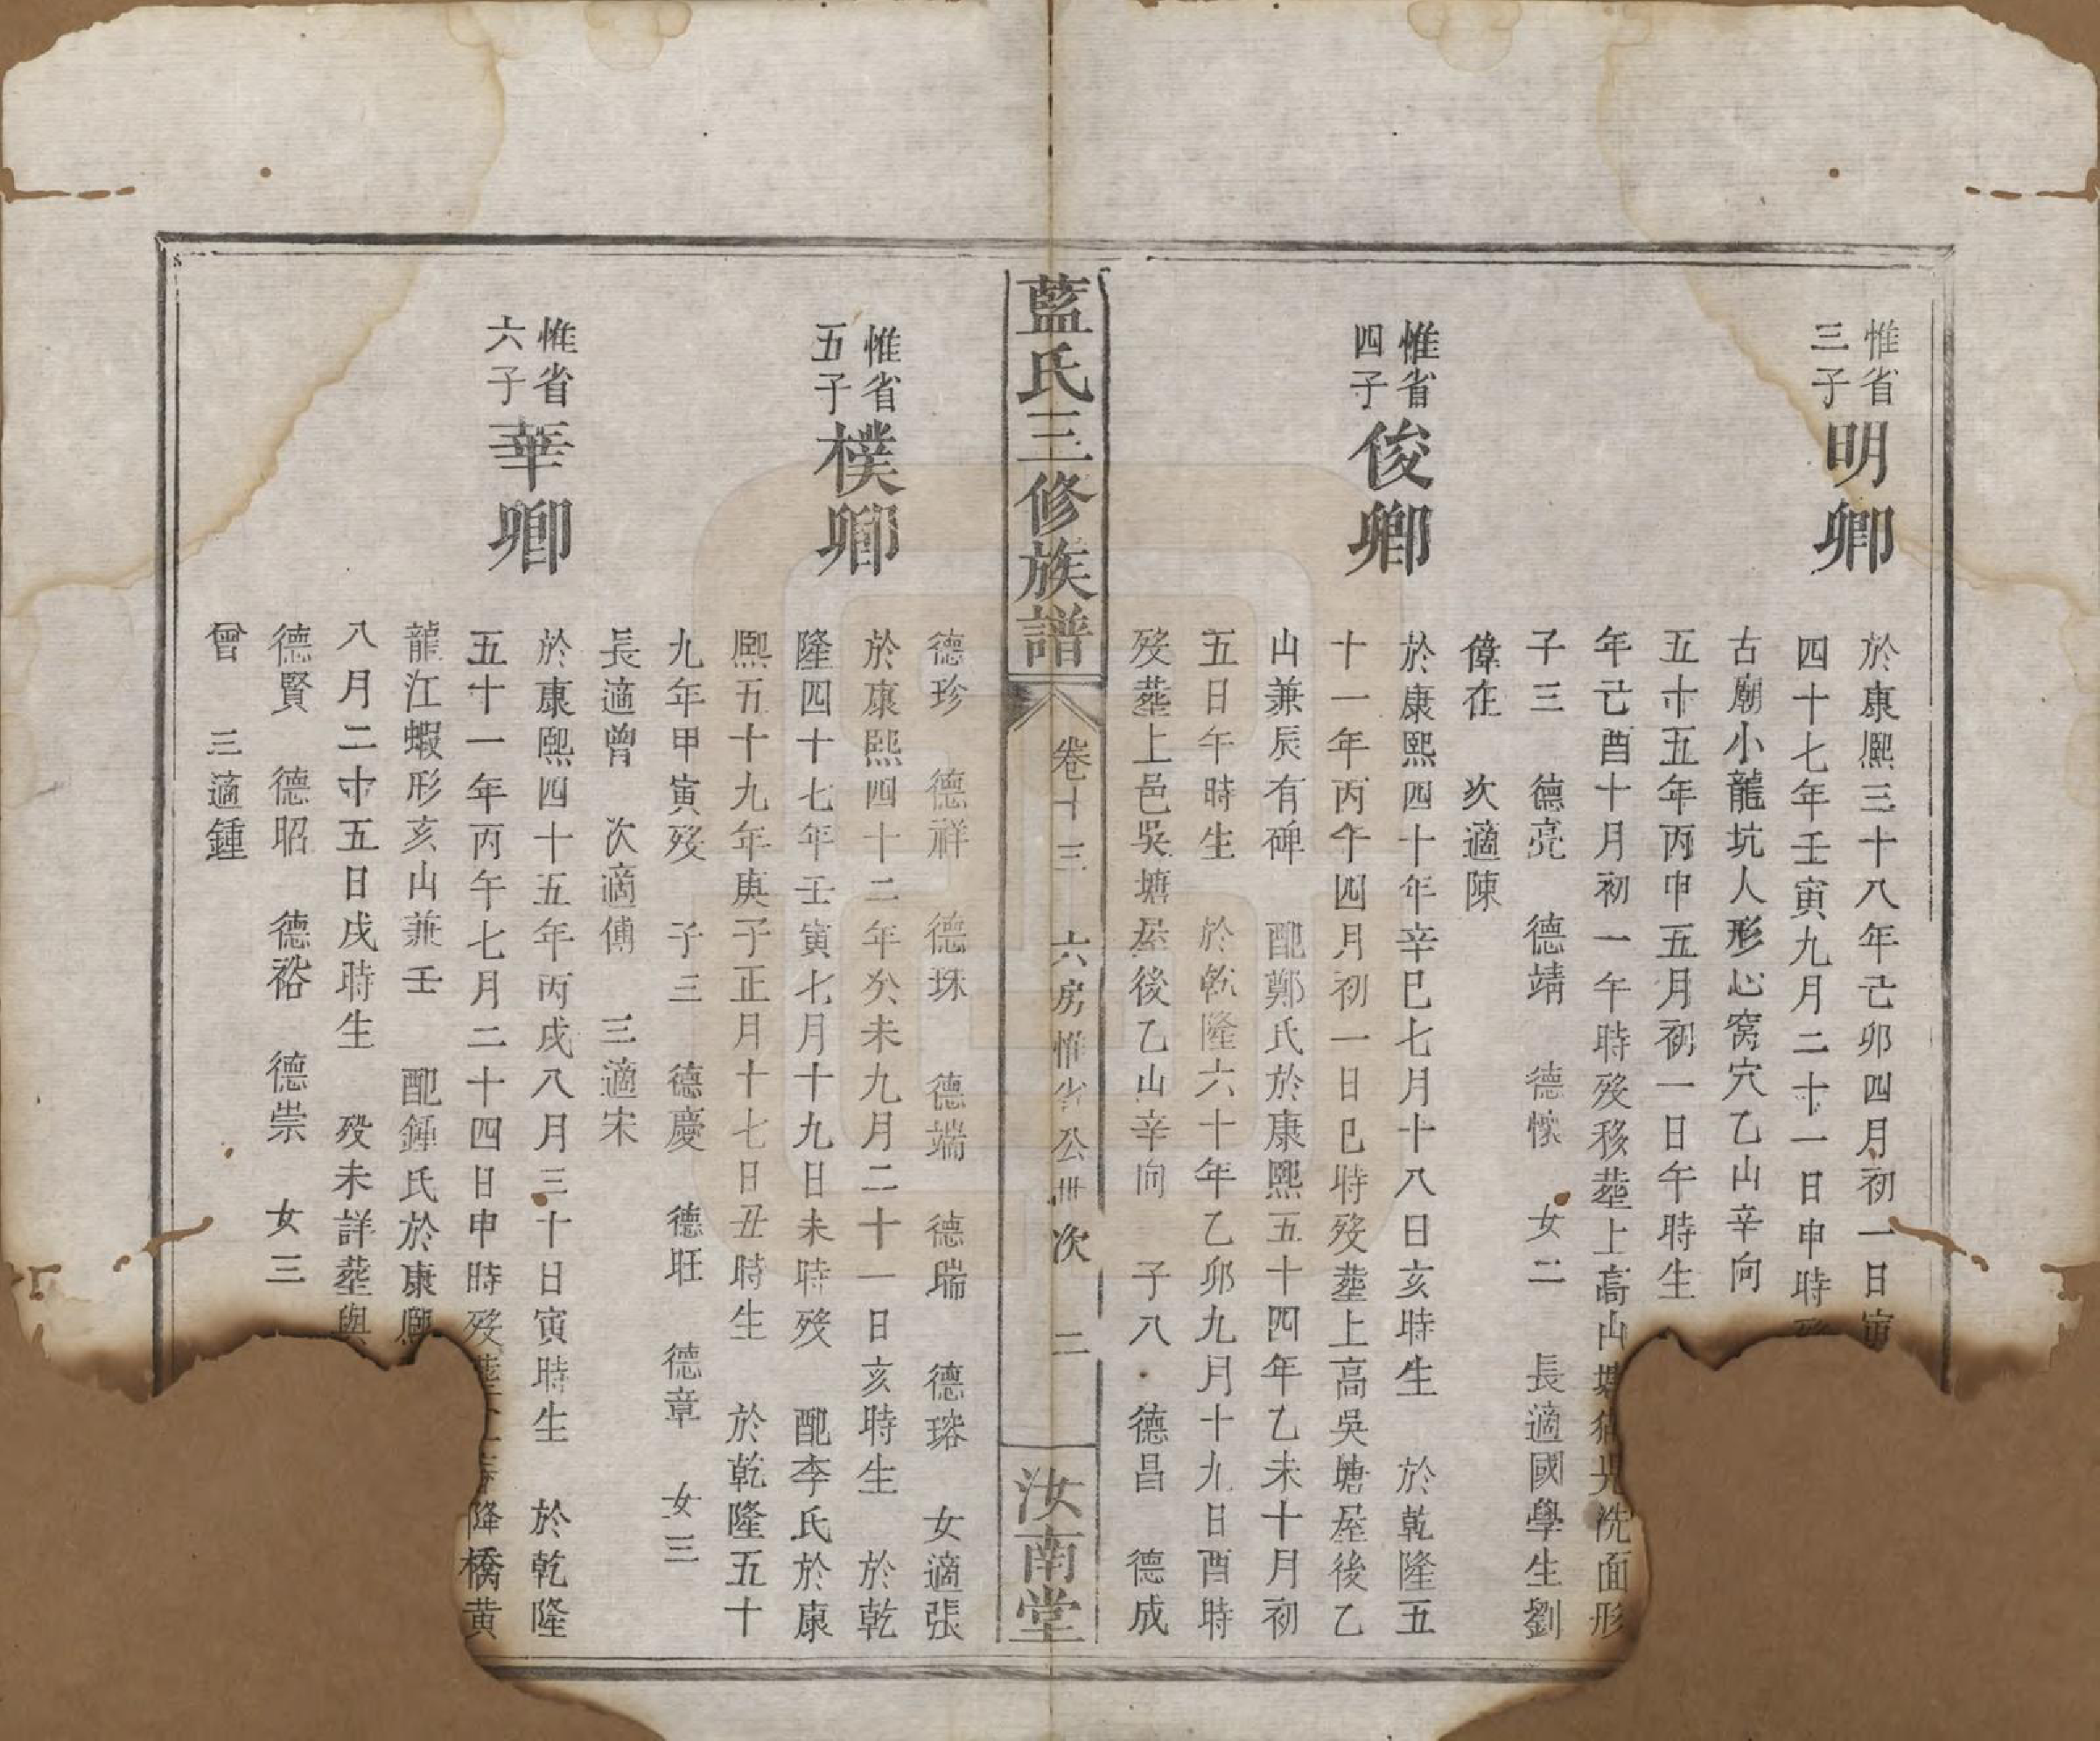 惟省
三子
明卿
於康熈三十八年己卯四月初一日寅
四十七年壬寅九月二十一日申時歿
古廟小龍坑人形心窩穴乙山辛向
五十五年丙申五月初一日午時生
年己酉十月初一午時歿移塟上高山塘 洗面形
子三 德亮 德靖 德懷 女二 長適國學生劉
偉在 次適陳
惟省
四子
俊卿
於康熙四十年辛巳七月十八日亥時生 於乾隆五
十一年丙午四月初一日巳時歿塟上高吳塘屋後乙
山兼辰有碑 配鄭氏於康熙五十四年乙未十月初
五日午時生 於乾隆六十年乙卯九月十九日酉時
歿塟上邑吳塘屋後乙山辛向 子八 德昌 德成
藍氏三修族譜 卷十三 六房惟省公世次 二 汝南堂
德珍 德祥 德珠 德端 德瑞 德瑢 女適張
惟省
五子
樸卿
於康熙四十二年癸未九月二十一日亥時生 於乾
隆四十七年壬寅七月十九日未時歿 配李氏於康
熈五十九年庚子正月十七日丑時生 於乾隆五十
九年甲寅歿 子三 德慶 德旺 德章 女三
長適曾 次適傅 三適宋
惟省
六子
華卿
於康熙四十五年丙戌八月三十日寅時生 於乾隆
五十一年丙午七月二十四日申時歿塟 降橋黄
龍江蝦形亥山兼壬 配鍾氏於康熈
八月二十五日戌時生 歿未詳塟與
德賢 德昭 德裕 德崇 女三
曾 三適鍾